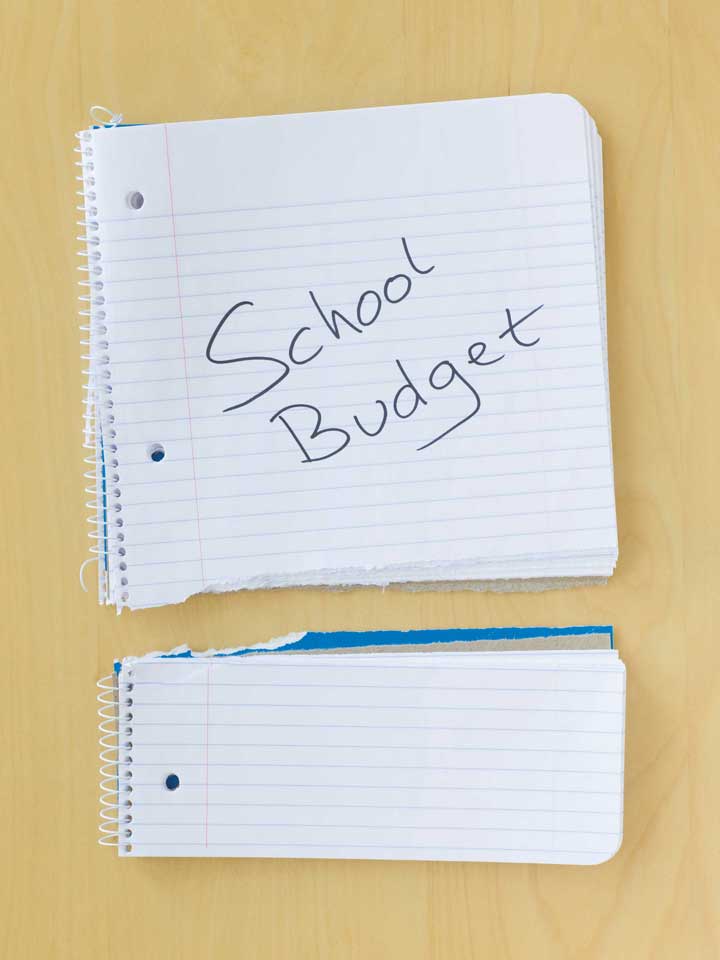 School
Budget